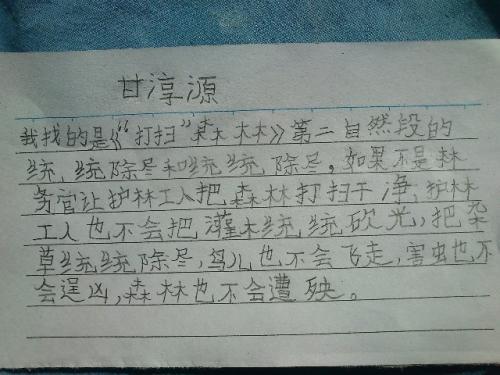 甘淳源
我找的是《“打扫”森林》第二自然段的
统统除尽和统统除尽,如果不是林
务官让护林工人把森林打扫干净,护林
工人也不会把灌木统统砍光,把杂
草统统除尽,鸟儿也不会飞走,害虫也不
会逞凶,森林也不会遭殃。